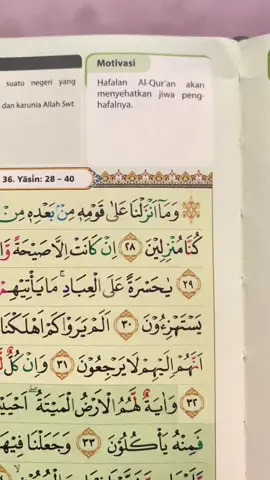 suatu negeri yang
dan karunia Allah Swt.
Motivasi
Hafalan Al-Qur'an akan
menyehatkan jiwa peng-
hafalnya.
36. Yāsin: 28 – 40
وَمَآ اَنْزَلْنَا عَلٰى قَوْمِهٖ مِنْۢ بَعْدِهٖ مِنْ
كُنَّا مُنْزِلِيْنَ ٢٨ اِنْ كَانَتْ اِلَّا صَيْحَةً وَّا
٢٩ يٰحَسْرَةً عَلَى الْعِبَادِۚ مَا يَأْتِيْهِمْ
يَسْتَهْزِءُوْنَ ٣٠ اَلَمْ يَرَوْا كَمْ اَهْلَكْنَا
اَنَّهُمْ اِلَيْهِمْ لَا يَرْجِعُوْنَ ٣١ وَاِنْ كُلٌّ
٣٢ وَاٰيَةٌ لَّهُمُ الْاَرْضُ الْمَيْتَةُۖ اَحْيَيْ
فَمِنْهُ يَأْكُلُوْنَ ٣٣ وَجَعَلْنَا فِيْهَا